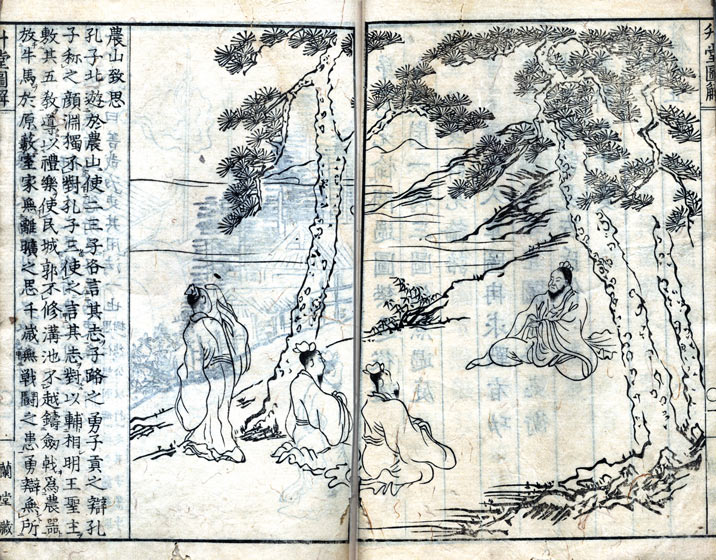 升堂圖解
農山致思
孔子北遊於農山使二三子各言其志子路之勇子貢之辯孔
子称之顔淵獨不對孔子三使之言其志對以輔相明王聖主
敷其五教導以禮樂使民城郭不修溝池不越鑄劍戟為農器
放牛馬於原藪室家無離曠之思千歳無戰鬪之患勇辯無所
升堂圖解
蘭堂藏